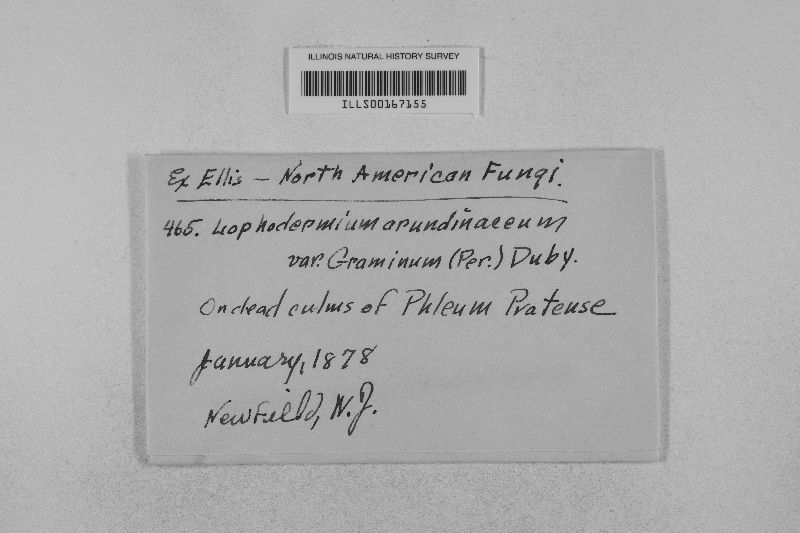 ILLINOIS NATURAL HISTORY SURVEY
ILLS00167155
Ex Ellis – North American Fungi.
465. Lophodermium arundinaceum
var. Graminum (Per.) Duby.
On dead culms of Phleum Pratense
January, 1878
Newfield, N.J.